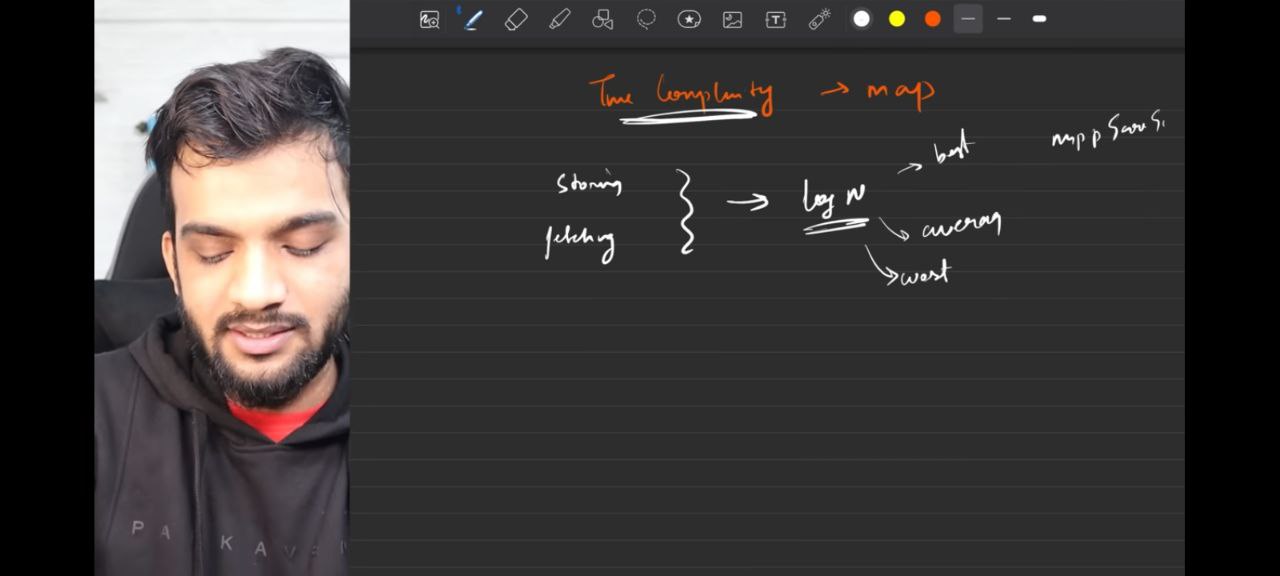 Time Complexity → map
storing
fetching
→ log N
→ best
→ average
→ worst
mpp
PA KAV